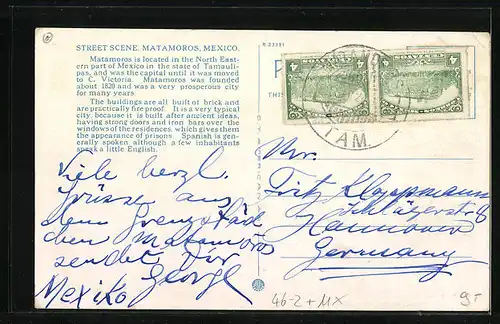 STREET SCENE, MATAMOROS, MEXICO.
Matamoros is located in the North East-
ern part of Mexico in the state of Tamauli-
pas, and was the capital until it was moved
to C. Victoria. Matamoros was founded
about 1820 and was a very prosperous city
for many years.
The buildings are all built of brick and
are practically fire proof. It is a very typical
city, because it is built after ancient ideas,
having strong doors and iron bars over the
windows of the residences, which gives them
the appearance of prisons. Spanish is gen-
erally spoken although a few inhabitants
speak a little English.
P
THIS
TAM.
Viele herzl.
Grüsse aus
dem Grenzstäd
chen Matamoros
sendet Dir
Georg
Mexiko
Fritz Kloppmann
Hannover
Germany
46-2 + MX
9-